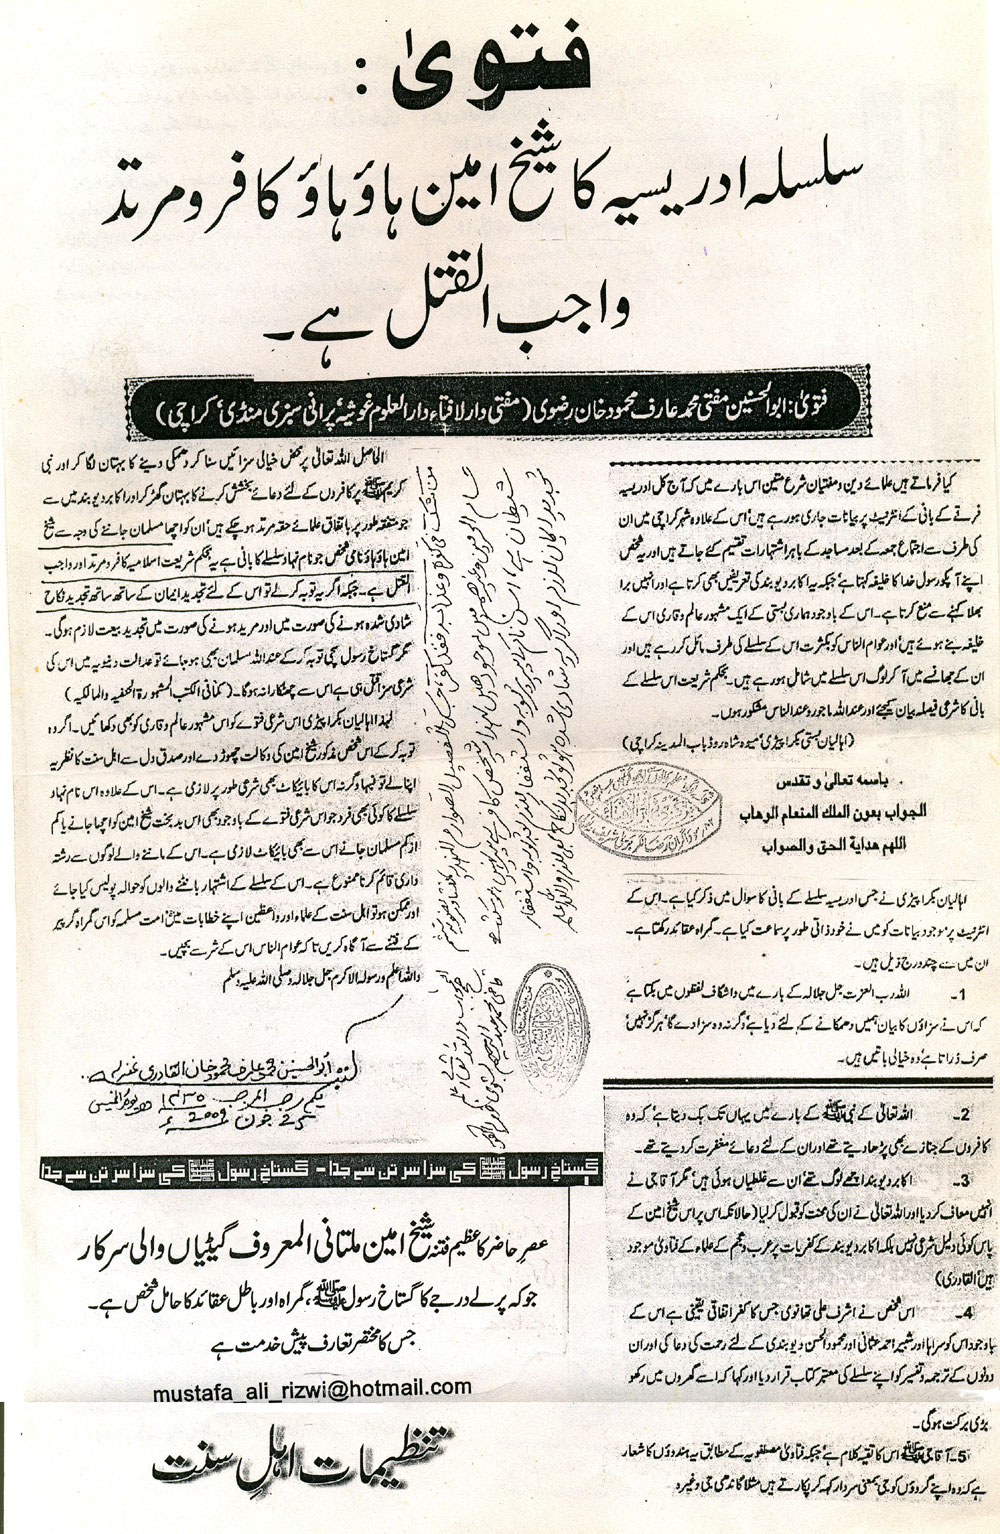 فتویٰ:
سلسلہ ادریسیہ کا شیخ امین ہاؤ ہاؤ کافر و مرتد
واجب القتل ہے۔
فتویٰ: ابوالحسنین مفتی محمد عارف محمود خان رضوی (مفتی دارلافتاء دارالعلوم غوثیہ پرانی سبزی منڈی، کراچی)
کیا فرماتے ہیں علمائے دین و مفتیان شرع متین اس بارے میں کہ آج کل ادریسیہ
فرقے کے بانی کے انٹرنیٹ پر بیانات جاری ہو رہے ہیں، اس کے علاوہ شہر کراچی میں ان
کی طرف سے اجتماع جمعہ کے بعد مساجد کے باہر اشتہارات تقسیم کئے جاتے ہیں اور یہ شخص
اپنے آپ کو رسول خدا کا خلیفہ کہتا ہے، جبکہ یہ اکابر دیوبند کی تعریفیں بھی کرتا ہے اور انہیں برا
بھلا کہنے سے منع کرتا ہے۔ اس کے باوجود ہماری بستی کے ایک مشہور عالم و قاری اس کے
خلیفہ بنے ہوئے ہیں اور عوام الناس کو بکثرت اس کے سلسلے کی طرف مائل کر رہے ہیں اور
ان کے جھانسے میں آکر لوگ اس سلسلے میں شامل ہو رہے ہیں۔ بحکم شریعت اس سلسلے کے
بانی کا شرعی فیصلہ بیان کیجئے اور عنداللہ ماجور و عندالناس مشکور ہوں۔
(اہالیان بستی بکرا پیڑی، میوہ شاہ روڈ باب المدینہ کراچی)
باسمہ تعالیٰ و تقدس
الجواب بعون الملک المنعام الوهاب
اللهم هداية الحق والصواب
اہالیان بکرا پیڑی نے جس ادریسیہ سلسلے کے بانی کا سوال میں ذکر کیا ہے۔ اس کے
انٹرنیٹ پر موجود بیانات کو میں نے خود ذاتی طور پر سماعت کیا ہے۔ گمراہ عقائد رکھتا ہے۔
ان میں سے چند درج ذیل ہیں۔
1۔ اللہ رب العزت جل جلالہ کے بارے میں واشگاف لفظوں میں بکتا ہے
کہ اس نے سزاؤں کا بیان ہمیں دھمکانے کے لئے دیا ہے، وگرنہ وہ سزا دے گا، ہرگز نہیں،
صرف ڈراتا ہے، وہ خیالی باتیں ہیں۔
2۔ اللہ تعالیٰ کے نبی ﷺ کے بارے میں یہاں تک بک دیتا ہے، کہ وہ
کافروں کے جنازے بھی پڑھا دیتے تھے اور ان کے لئے دعائے مغفرت کر دیتے تھے۔
3۔ اکابر دیوبند اچھے لوگ تھے، ان سے غلطیاں ہوئی ہیں، مگر آقا جی نے
انہیں معاف کر دیا اور اللہ تعالیٰ نے ان کی محنت کو قبول کر لیا (حالانکہ اس پر اس شیخ امین کے
پاس کوئی دلیل شرعی نہیں بلکہ اکابر دیوبند کے کفریات پر عرب و عجم کے علماء کے فتاویٰ موجود
ہیں، القادری)
4۔ اس شخص نے اشرف علی تھانوی جس کا کفر اتفاقی یقینی ہے اس کے
باوجود اس کو سراہا اور شبیر احمد عثمانی اور محمود الحسن دیوبندی کے لئے رحمت کی دعا کی اور ان
دونوں کے ترجمہ و تفسیر کو اپنے سلسلے کی معتبر کتاب قرار دیا اور کہا کہ اسے گھروں میں رکھو
بڑی برکت ہوگی۔
5۔ آقا جی ﷺ اس کا تکیہ کلام ہے، جبکہ فتاویٰ مصطفویہ کے مطابق یہ ہندوؤں کا شعار
ہے کہ وہ اپنے گروؤں کو جی بمعنی سردار کہہ کر پکارتے ہیں مثلاً گاندھی جی وغیرہ
الحاصل اللہ تعالیٰ پر محض خیالی سزائیں سنا کر دھمکی دینے کا بہتان لگا کر اور نبی
کریم ﷺ پر کافروں کے لئے دعائے بخشش کرنے کا بہتان گھڑ کر اور اکابر دیوبند میں سے
جو متفقہ طور پر باتفاق علمائے حقہ مرتد ہو چکے ہیں، ان کو اچھا مسلمان جاننے کی وجہ سے شیخ
امین ہاؤ ہاؤ نامی شخص جو نام نہاد سلسلے کا بانی ہے یہ بحکم شریعت اسلامیہ کافر و مرتد اور واجب
القتل ہے۔ جبکہ اگر یہ توبہ کر لے تو اس کے لئے تجدید ایمان کے ساتھ ساتھ تجدید نکاح
شادی شدہ ہونے کی صورت میں اور مرید ہونے کی صورت میں تجدید بیعت لازم ہوگی۔
مگر گستاخ رسول سچی توبہ کر کے عنداللہ مسلمان بھی ہو جائے تو عدالت دنیویہ میں اس کی
شرعی سزا قتل ہی ہے اس سے چھٹکارا نہ ہوگا۔ (کمافی الکتب المشہورۃ الحنفیہ والمالکیہ)
لہٰذا اہالیان بکرا پیڑی اس شرعی فتوے کو اس مشہور عالم و قاری کو بھی دکھائیں۔ اگر وہ
توبہ کر کے اس شخص مذکور شیخ امین کی وکالت چھوڑ دے اور صدق دل سے اہل سنت کا نظریہ
اپنا لے تو فبہا وگرنہ اس کا بائیکاٹ بھی شرعی طور پر لازمی ہے۔ اس کے علاوہ اس نام نہاد
سلسلے کا کوئی بھی فرد جو اس شرعی فتوے کے باوجود بھی اس بدبخت شیخ امین کو اچھا جانے یا کم
از کم مسلمان جانے اس سے بھی بائیکاٹ لازمی ہے۔ اس کے ماننے والے لوگوں سے رشتہ
داری قائم کرنا ممنوع ہے۔ اس کے سلسلے کے اشتہار بانٹنے والوں کو حوالہ پولیس کیا جائے
اور ممکن ہو تو اہل سنت کے علماء اور واعظین اپنے خطابات میں امت مسلمہ کو اس گمراہ گر پیر
کے فتنے سے آگاہ کریں تاکہ عوام الناس اس کے شر سے بچیں۔
واللہ اعلم و رسولہ الاکرم جل جلالہ و صلی اللہ علیہ وسلم
ابوالحسنین محمد عارف محمود خان القادری غفرلہ
یکم رجب المرجب ۱۴۳۰
25 جون 2009
گستاخ رسول ﷺ کی سزا سر تن سے جدا - گستاخ رسول ﷺ کی سزا سر تن سے جدا
عصر حاضر کا عظیم فتنہ شیخ امین ملتانی المعروف گیٹیاں والی سرکار
جو کہ پرلے درجے کا گستاخ رسول ﷺ، گمراہ اور باطل عقائد کا حامل شخص ہے۔
جس کا مختصر تعارف پیش خدمت ہے
mustafa_ali_rizwi@hotmail.com
تنظیمات اہلِ سنت